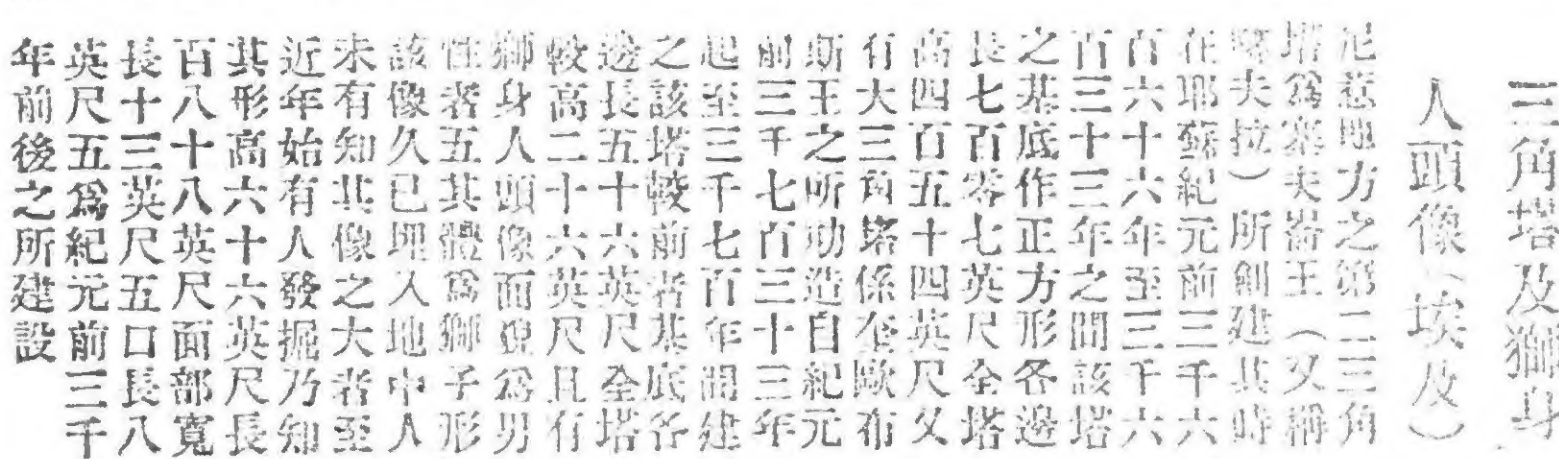 三角塔及獅身
人頭像（埃及）
尼地方之第二三角
塔爲塞夫崙王（又稱
喀夫拉）所創建其時
在耶蘇紀元前三千六
百六十六年至三千六
百三十三年之間該塔
之基底作正方形各邊
長七百零七英尺全塔
高四百五十四英尺又
有大三角塔係奎歐布
斯王之所造自紀元
前三千七百三十三年
起至三千七百年間建
之該塔較前者基底各
邊長五十六英尺全塔
較高二十六英尺且有
獅身人頭像面貌爲男
性者五其體爲獅子形
該像久已埋入地中人
未有知其像之大者至
近年始有人發掘乃知
其形高六十六英尺長
百八十八英尺面部寬
長十三英尺五口長八
英尺五爲紀元前三千
年前後之所建設